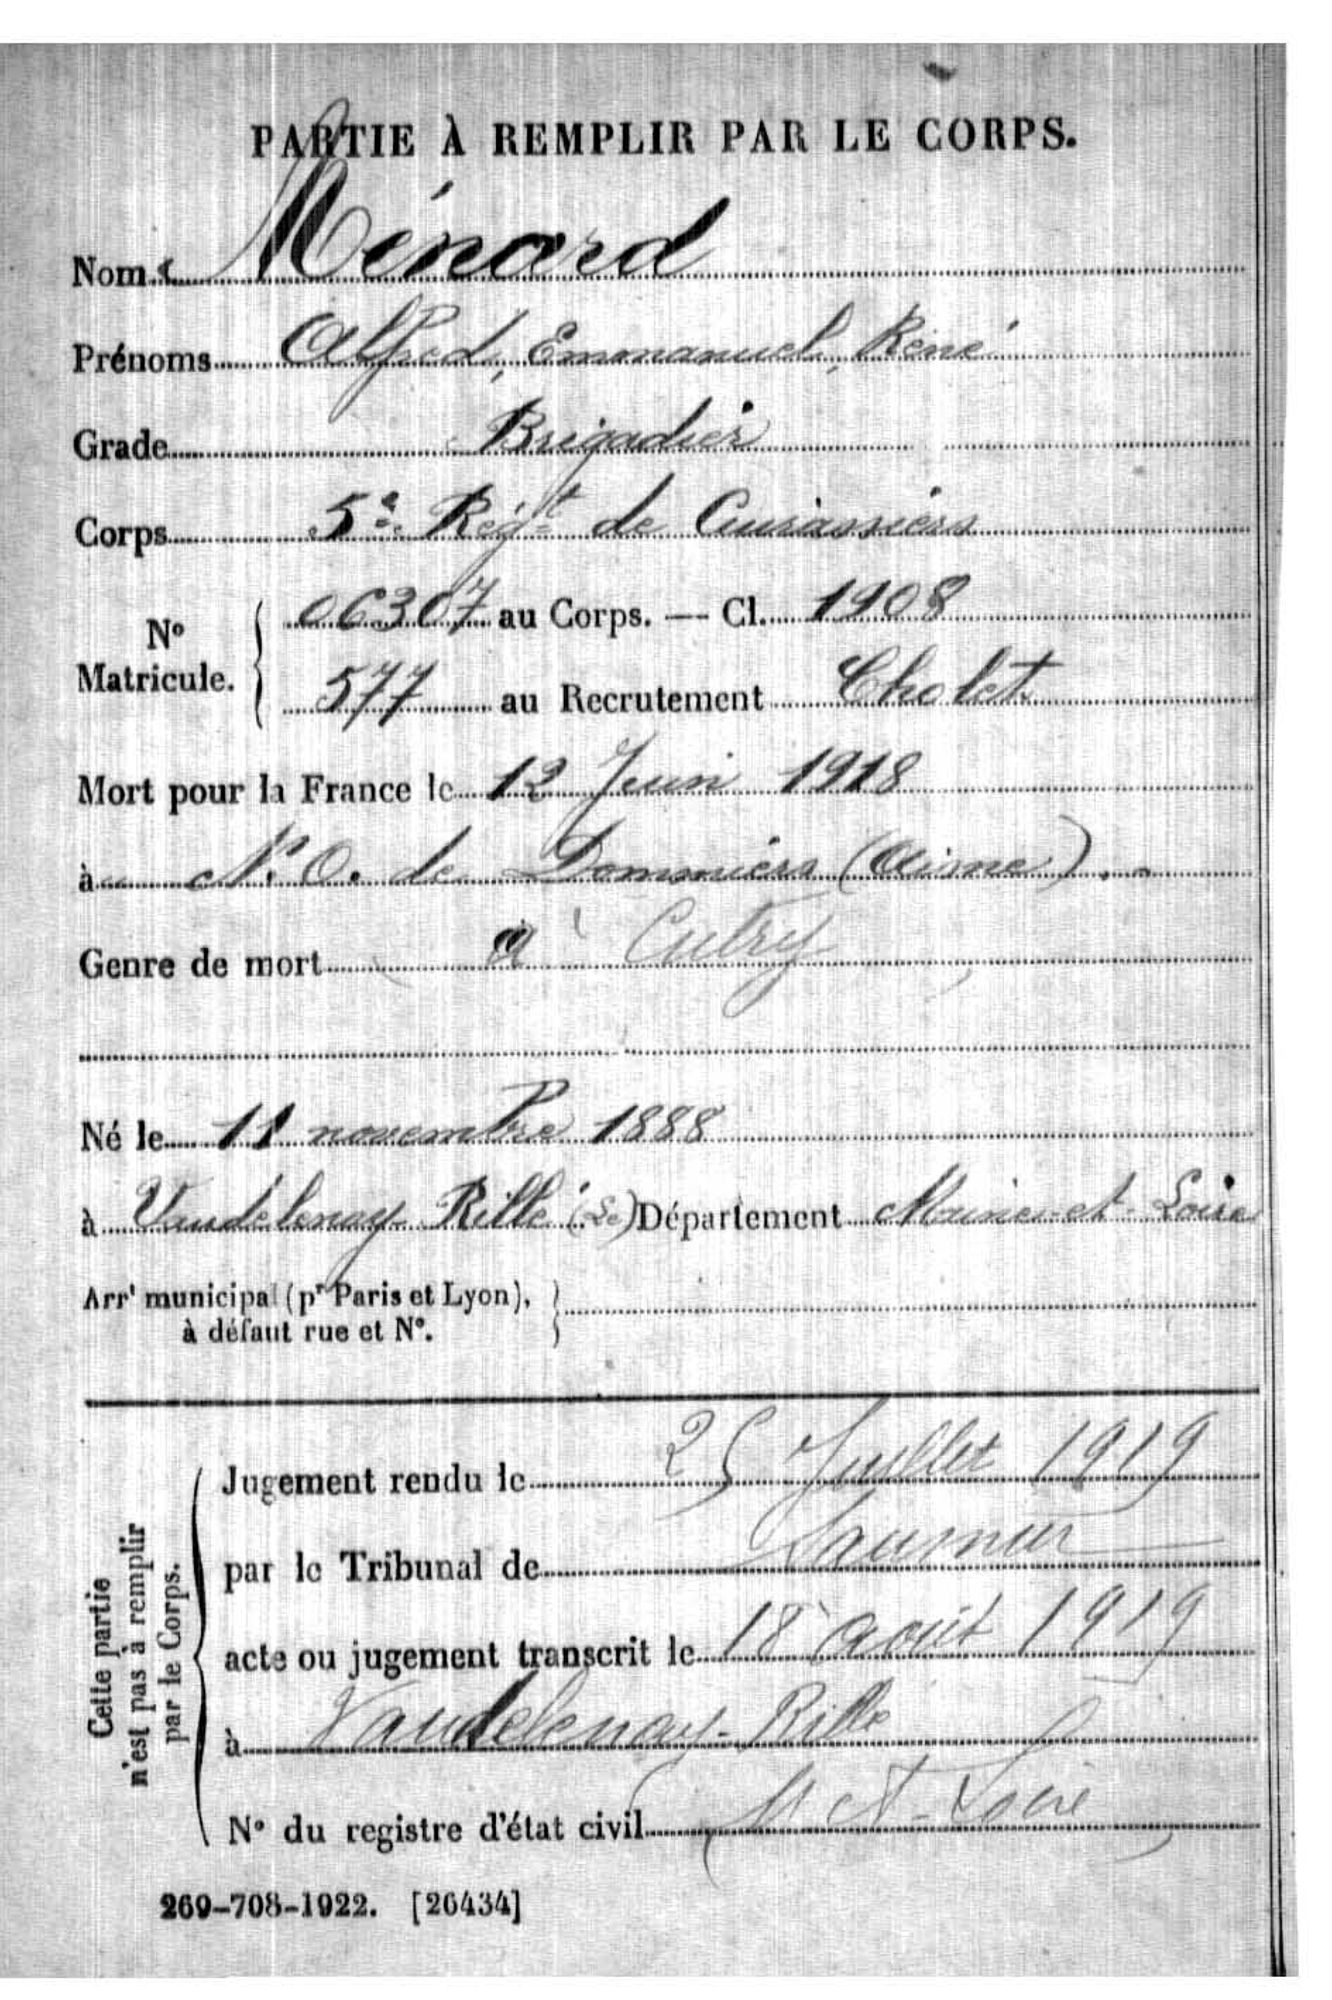 PARTIE À REMPLIR PAR LE CORPS.
Nom Ménard
Prénoms Alfred, Emmanuel, René
Grade Brigadier
Corps 5e Régt de Cuirassiers
N° Matricule. 06307 au Corps. — Cl. 1908
577 au Recrutement Cholet
Mort pour la France le 12 Juin 1918
à N. O. de Dommiers (Aisne).
Genre de mort à Cutry
Né le 11 novembre 1888
à Vaudelenay-Rillé (Le) Département Maine-et-Loire
Arrt municipal (pr Paris et Lyon),
à défaut rue et N°.
Cette partie
n'est pas à remplir
par le Corps.
Jugement rendu le 25 Juillet 1919
par le Tribunal de Saumur
acte ou jugement transcrit le 18 août 1919
à Vaudelenay-Rillé
N° du registre d'état civil (M et-Loire)
269-708-1922. [26434]